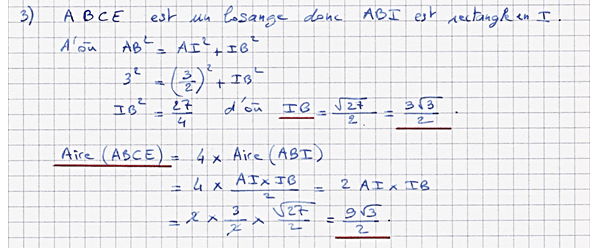 3) ABCE est un losange donc ABI est rectangle en I.
D'où AB² = AI² + IB²
3² = (3/2)² + IB²
IB² = 27/4 d'où IB = √27/2 = 3√3/2.
Aire (ABCE) = 4 × Aire (ABI)
= 4 × AI×IB/2 = 2 AI × IB
= 2 × 3/2 × √27/2 = 9√3/2.